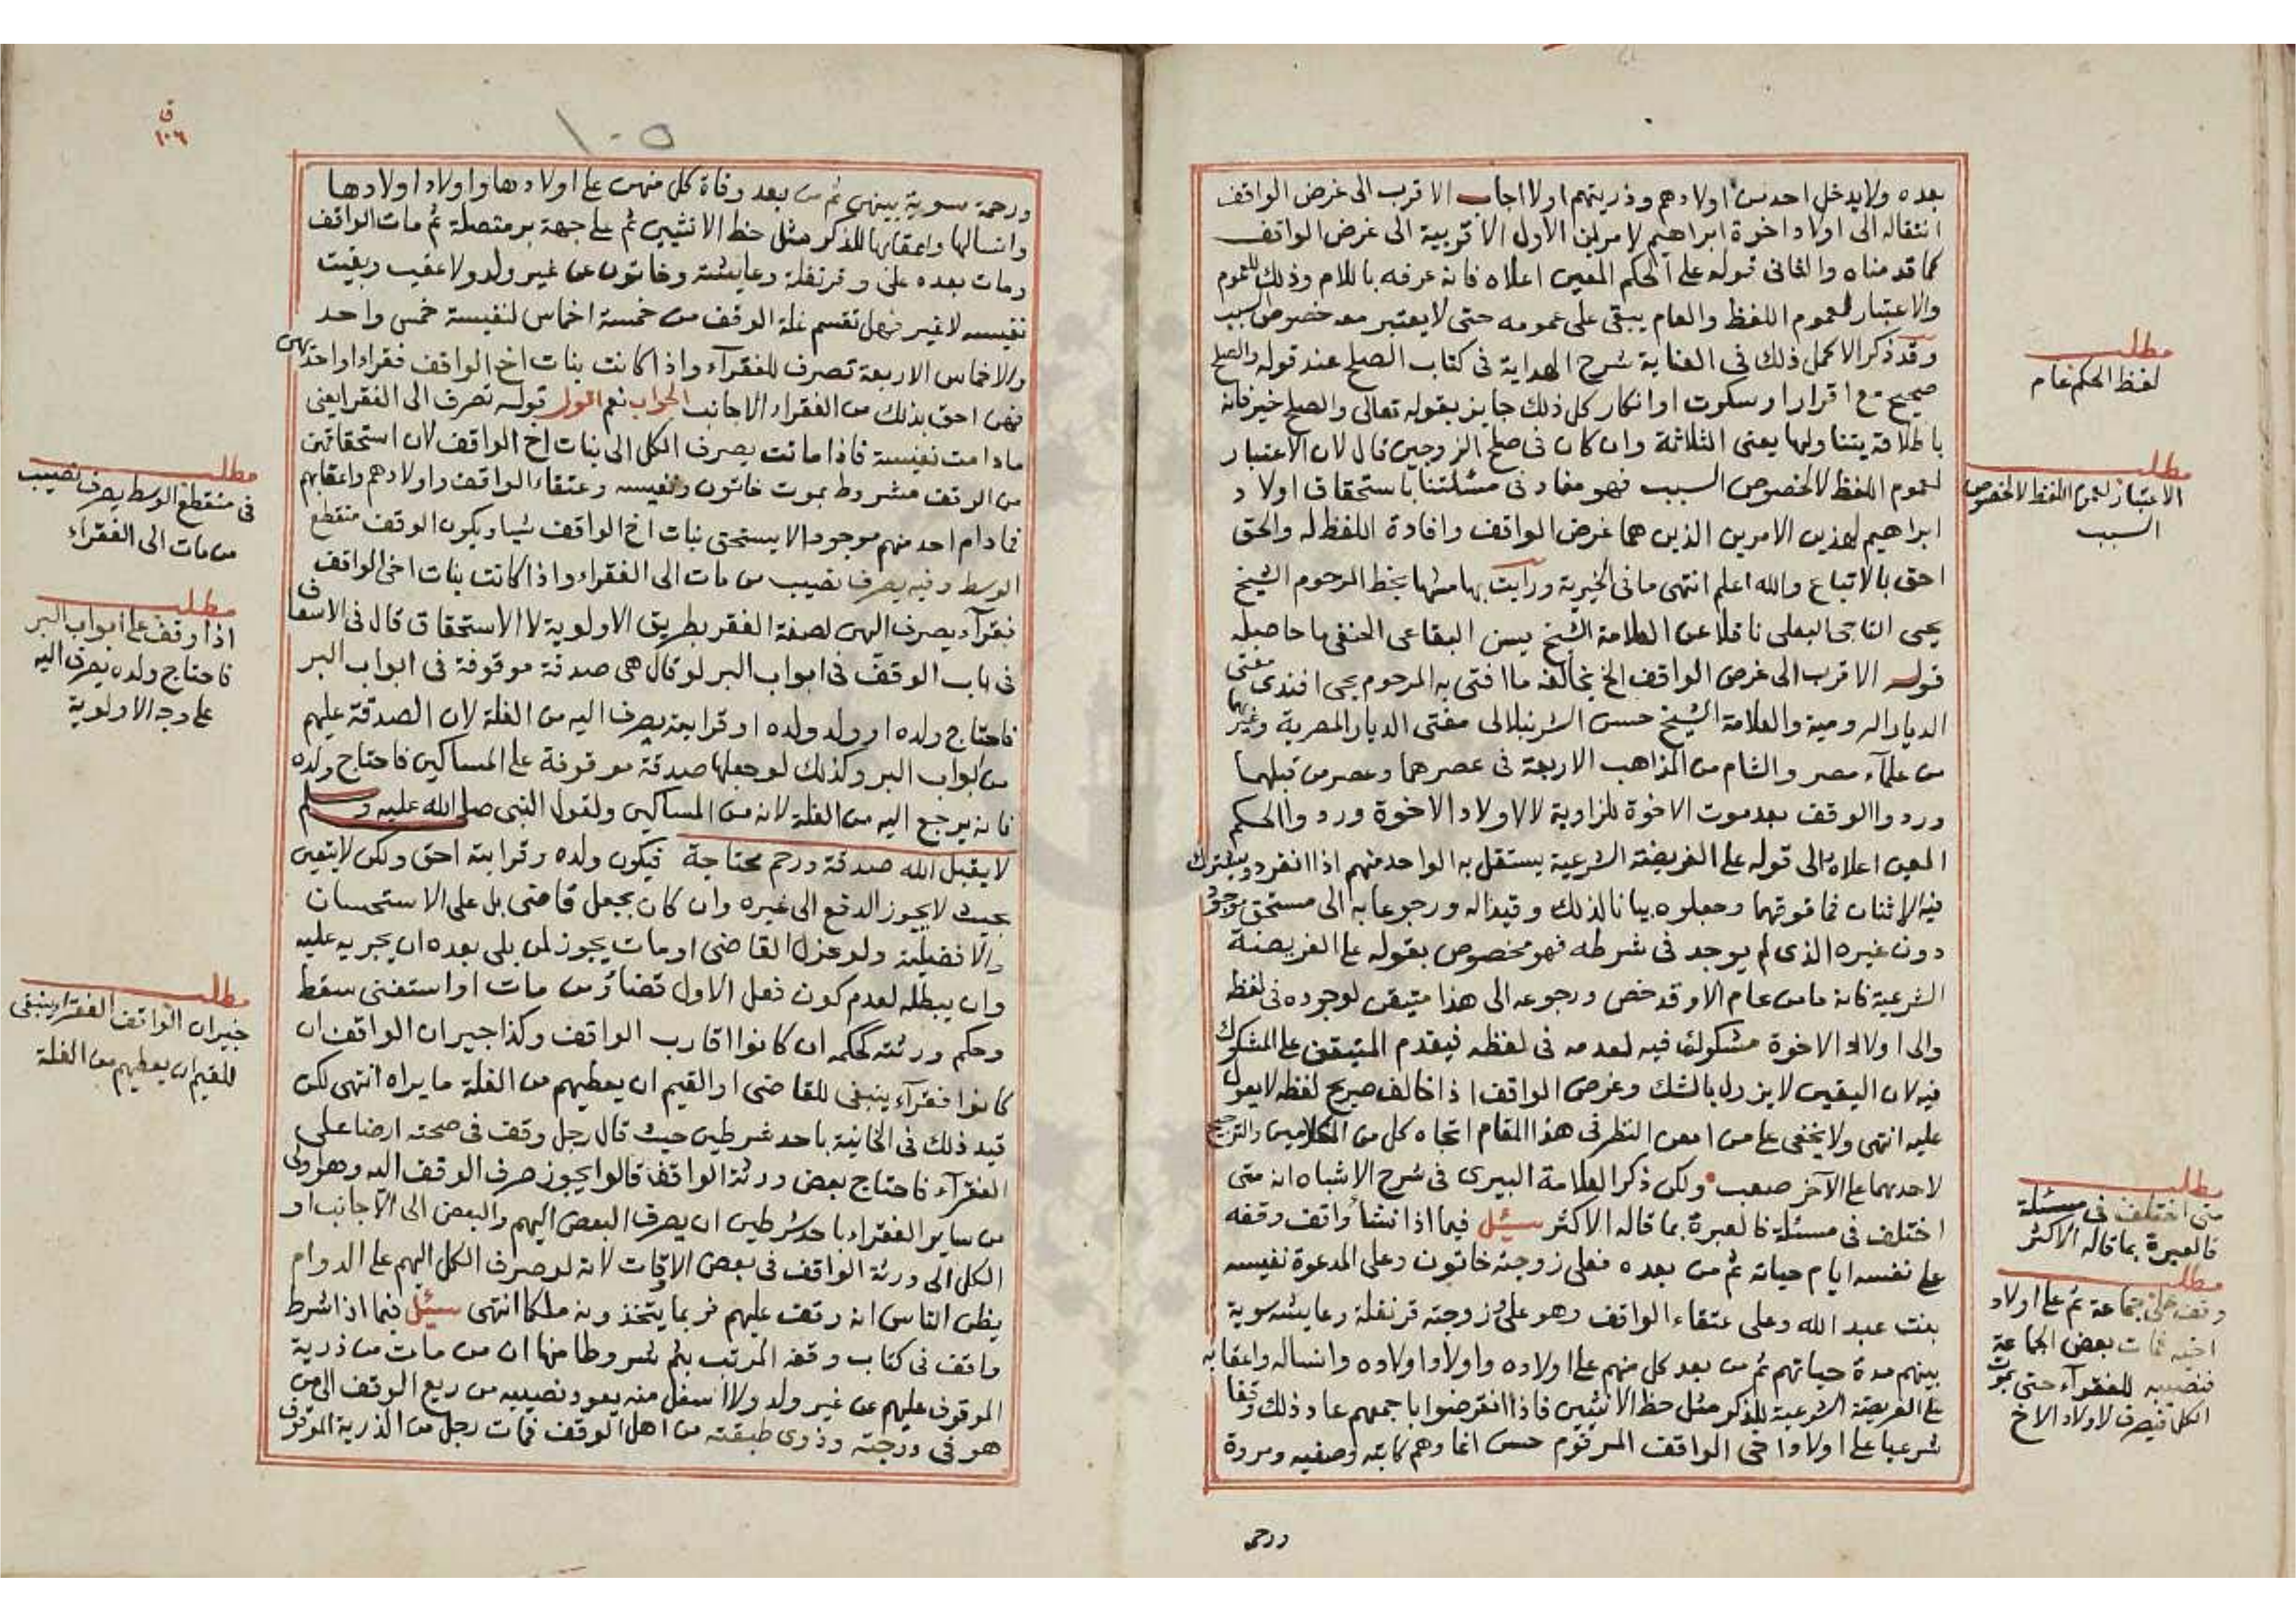 بعده ولا يدخل احد من اولادهم وذريتهم اولا اجاب الاقرب الى غرض الواقف
انتقاله الى اولاد اخوة ابراهيم لامرين الاول الاقربية الى غرض الواقف
كما قدمناه والثانى قوله على الحكم المعين اعلاه فانه عرفه باللام وذلك للعموم
والاعتبار لعموم اللفظ والعام يبقى على عمومه حتى لا يعتبر معه خصوص السبب
وقد ذكر الاكمل ذلك فى العناية شرح الهداية فى كتاب الصلح عند قوله والصلح
صحيح مع اقرار او سكوت او انكار كل ذلك جايز بقوله تعالى والصلح خير فانه
باطلاقه يتناولها يعنى الثلاثة وان كان فى صلح الزوجين قال لان الاعتبار
لعموم اللفظ لا لخصوص السبب فهو مفاد فى مسئلتنا باستحقاق اولاد
ابراهيم لهذين الامرين الذين هما غرض الواقف وافادة اللفظ له والحق
احق بالاتباع والله اعلم انتهى ما فى الخيرية ورايت بهامشها بخط المرحوم الشيخ
يحيى التاجى البعلى ناقلا عن العلامة الشيخ يسن البقاعى الحنفى ما حاصله
قوله الاقرب الى غرض الواقف الخ يخالفه ما افتى به المرحوم يحيى افندى مفتى
الديار الرومية والعلامة الشيخ حسن الشرنبلالى مفتى الديار المصرية وغيرهما
من علمآء مصر والشام من المذاهب الاربعة فى عصرهما وعصر من قبلهما
وردوا الوقف بعد موت الاخوة للزاوية لا لاولاد الاخوة وردوا الحكم
المعين اعلاه الى قوله على الفريضة الشرعية يستقل به الواحد منهم اذا انفرد ويشترك
فيه الاثنان فما فوقهما وجعلوه بيانا لذلك وقيدا له ورجوعا به الى مستحق موجود
دون غيره الذى لم يوجد فى شرطه فهو مخصوص بقوله على الفريضة
الشرعية فانه ما من عام الا وقد خص ورجوعه الى هذا متيقن لوجوده فى لفظه
والى اولاد الاخوة مشكوك فيه لعدمه فى لفظه فيقدم المتيقن على المشكوك
فيه لان اليقين لا يزول بالشك وغرض الواقف اذا خالف صريح لفظه لا يعول
عليه انتهى ولا يخفى على من امعن النظر فى هذا المقام اتجاه كل من الكلامين والترجيح
لاحدهما على الآخر صعب ولكن ذكر العلامة البيرى فى شرح الاشباه انه متى
اختلف فى مسئلة فالعبرة بما قاله الاكثر سئل فيما اذا انشأ واقف وقفه
على نفسه ايام حياته ثم من بعده فعلى زوجته خاتون وعلى المدعوة نفيسه
بنت عبد الله وعلى عتقاء الواقف وهو على وزوجته قرنفلة وعايشه سوية
بينهم مدة حياتهم ثم من بعد كل منهم على اولاده واولاد اولاده وانساله واعقابه
على الفريضة الشرعية للذكر مثل حظ الانثيين فاذا انقرضوا باجمعهم عاد ذلك وقفا
شرعيا على اولاد اخى الواقف المرقوم حسن اغا وهم كاتبه وصفيه ومروة
ورحمه
مطلب
لفظ الحكم عام
مطلب
الاعتبار لعموم اللفظ لا لخصوص
السبب
مطلب
متى اختلف فى مسئلة
فالعبرة بما قاله الاكثر
مطلب
وقف على جماعة ثم على اولاد
اخيه فمات بعض الجماعة
فنصيبه للفقرآء حتى يموت
الكل فيصرف لاولاد الاخ
ق
١٠٦
١٠٥
ورحمة سوية بينهن ثم من بعد وفاة كل منهن على اولادها واولاد اولادها
وانسالها واعقابها للذكر مثل حظ الانثيين ثم على جهة بر متصلة ثم مات الواقف
ومات بعده على وقرنفلة وعايشة وخاتون عن غير ولد ولا عقيب وبقيت
نفيسه لا غير فهل تقسم غلة الوقف من خمسة اخماس لنفيسة خمس واحد
والاخماس الاربعة تصرف للفقرآء واذا كانت بنات اخ الواقف فقراء او احديهن
فهن احق بذلك من الفقراء الاجانب الجواب نعم اقول قوله تصرف الى الفقرا يعنى
مادامت نفيسة فاذا ماتت يصرف الكل الى بنات اخ الواقف لان استحقاقهن
من الوقف مشروط بموت خاتون ونفيسه وعتقاء الواقف واولادهم واعقابهم
فمادام احد منهم موجودا لا يستحق بنات اخ الواقف شيا ويكون الوقف منقطع
الوسط وفيه يصرف نصيب من مات الى الفقراء واذا كانت بنات اخى الواقف
فقرآء يصرف الهن لصفة الفقر بطريق الاولوية لا الاستحقاق قال فى الاسعاف
فى باب الوقف فى ابواب البر لو قال هى صدقة موقوفة فى ابواب البر
فاحتاج ولده او ولد ولده او قرابته يصرف اليه من الغلة لان الصدقة عليهم
من ابواب البر وكذلك لو جعلها صدقة موقوفة على المساكين فاحتاج ولده
فانه يرجع اليه من الغلة لانه من المساكين ولقول النبى صلى الله عليه وسلم
لا يقبل الله صدقة ورحم محتاجة فيكون ولده وقرابته احق ولكن لا يتعين
بحيث لا يجوز الدفع الى غيره وان كان بجعل قاضى بل على الاستحسان
والافضلية ولو عزل القاضى او مات يجوز لمن يلى بعده ان يجريه عليه
وان يبطله لعدم كون فعل الاول قضاء ومن مات او استغنى سقط
وحكم ورثته كحكمه ان كانوا اقارب الواقف وكذا جيران الواقف ان
كانوا فقرآء ينبغى للقاضى او القيم ان يعطيهم من الغلة ما يراه انتهى لكن
قيد ذلك فى الخانية باحد شرطين حيث قال رجل وقف فى صحته ارضا على
الفقرآء فاحتاج بعض ورثة الواقف قالوا يجوز صرف الوقف اليه وهو اولى
من ساير الفقراء باحد شرطين ان يصرف البعض اليهم والبعض الى الاجانب او
الكل الى ورثة الواقف فى بعض الاوقات لانه لو صرف الكل اليهم على الدوام
يظن الناس انه وقف عليهم فربما يتخذونه ملكا انتهى سئل فيما اذا شرط
واقف فى كتاب وقفه المرتب بثم شروطا منها ان من مات من ذرية
الموقوف عليهم عن غير ولد ولا اسفل منه يعود نصيبه من ريع الوقف الى من
هو فى درجته وذوى طبقته من اهل الوقف فمات رجل من الذرية الموقوف
مطلب
فى منقطع الوسط يصرف نصيب
من مات الى الفقرآء
مطلب
اذا وقف على ابواب البر
فاحتاج ولده يصرف اليه
على وجه الاولوية
مطلب
جيران الواقف الفقراء ينبغى
للقيم ان يعطيهم من الغلة